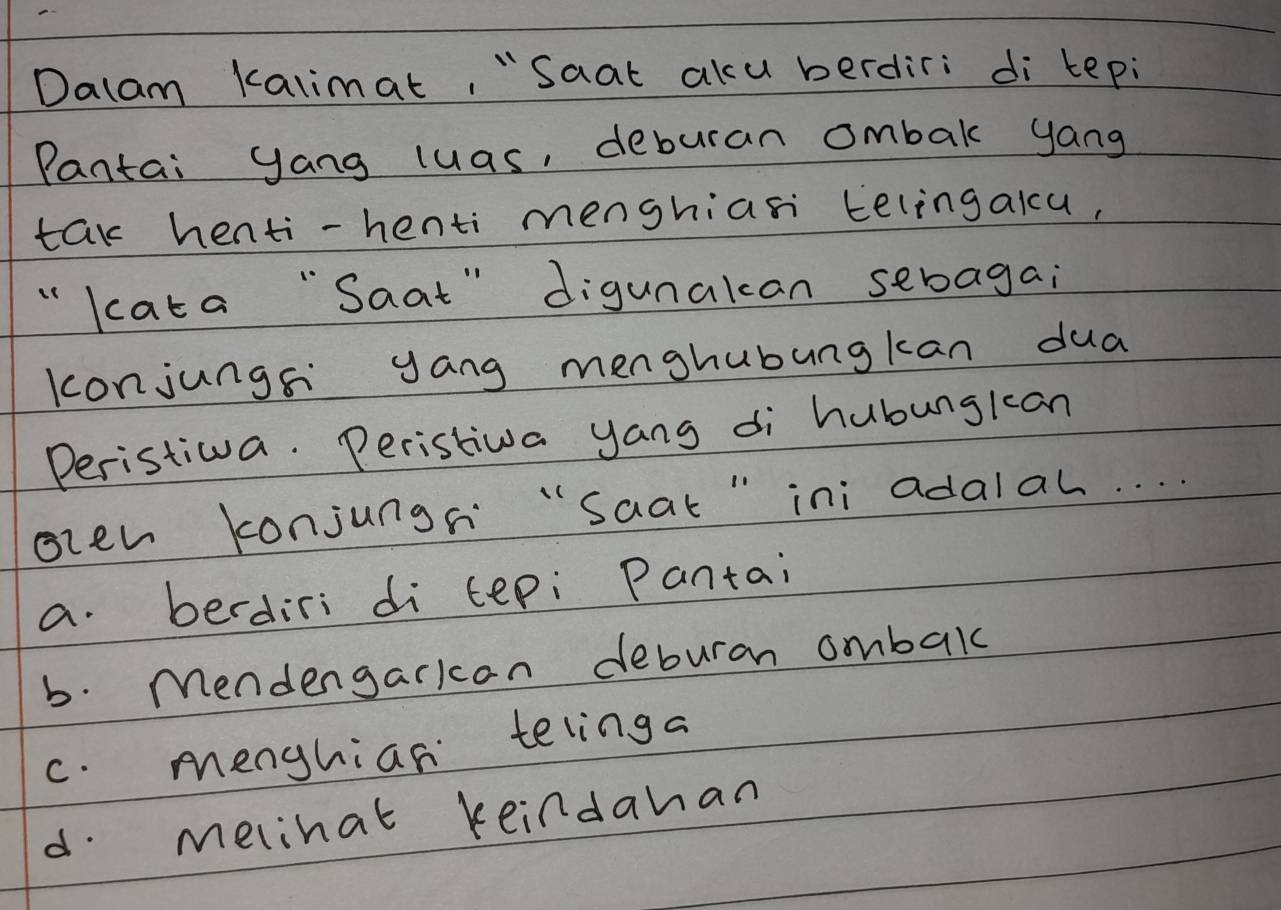 Dalam kalimat, "Saat aku berdiri di tepi
Pantai yang luas, deburan ombak yang
tak henti-henti menghiasi telingaku,
"kata "Saat" digunakan sebagai
konjungsi yang menghubungkan dua
Peristiwa. Peristiwa yang di hubungkan
oleh konjungsi "saat" ini adalah ....
a. berdiri di tepi Pantai
b. Mendengarkan deburan ombak
c. menghiasi telinga
d. Melihat keindahan